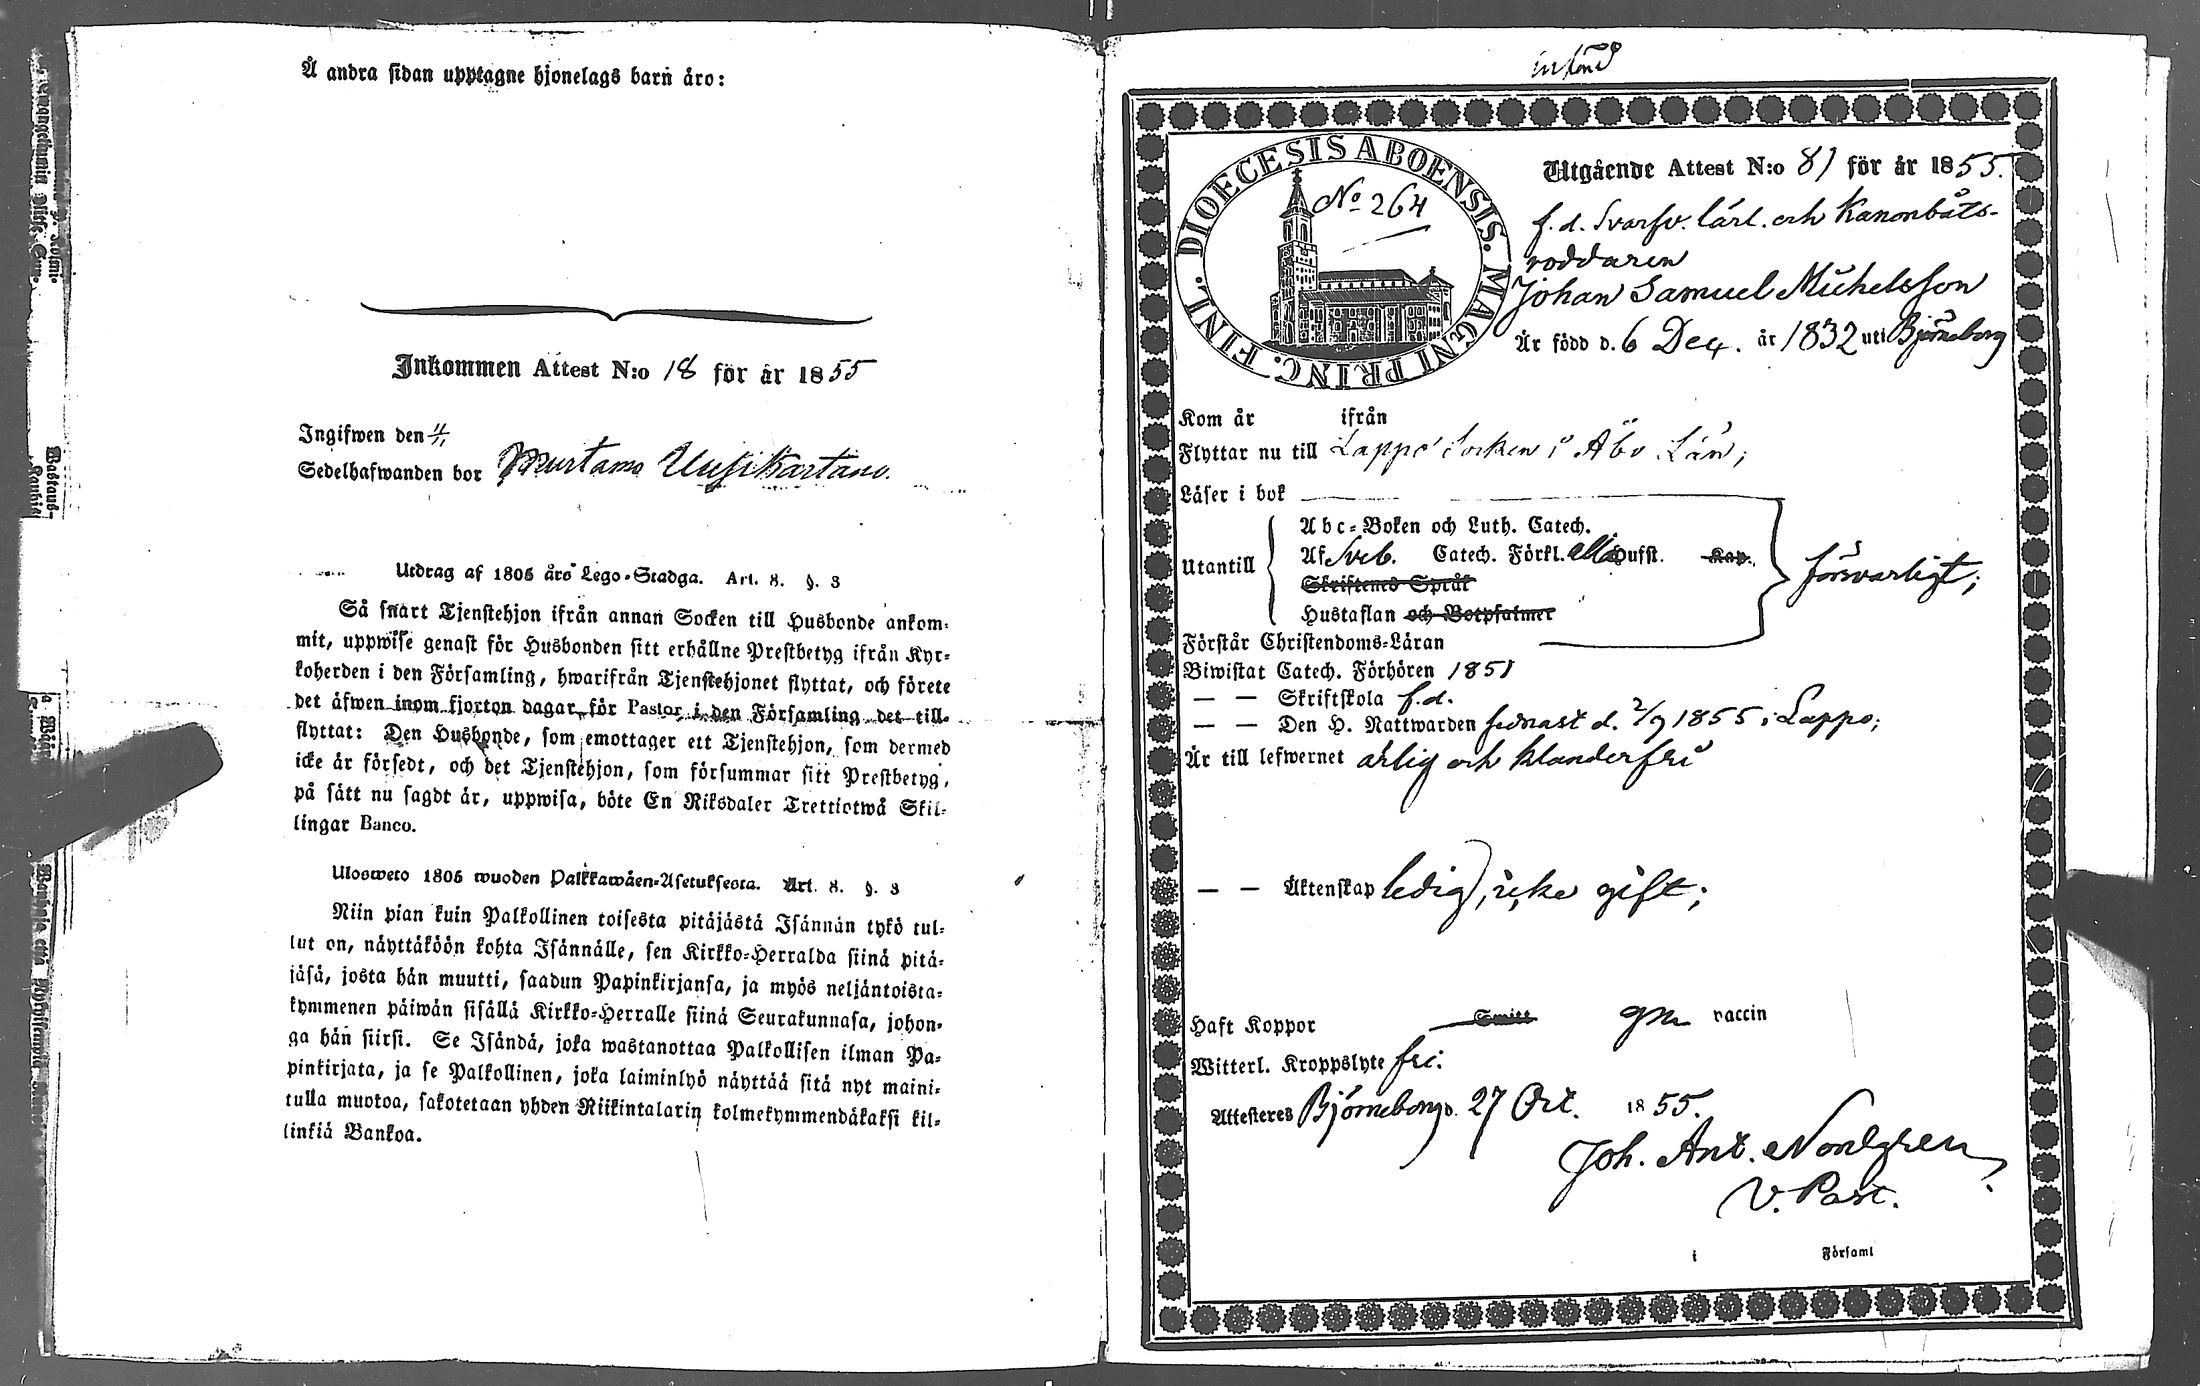 Å andra sidan upptagne hjonelags barn äro:
Inkommen Attest N:o 18 för år 1855
Ingifwen den 4/11
Sedelhafwanden bor Murtamo Uusikartano.
Utdrag af 1805 års Lego-Stadga. Art. 8. §. 3
Så snart Tjenstehjon ifrån annan Socken till Husbonde ankom-
mit, uppwise genast för Husbonden sitt erhållne Prestbetyg ifrån Kyr-
koherden i den Församling, hwarifrån Tjenstehjonet flyttat, och förete
det äfwen inom fjorton dagar för Pastor i den Församling det till-
flyttat: Den Husbonde, som emottager ett Tjenstehjon, som dermed
icke är försedt, och det Tjenstehjon, som försummar sitt Prestbetyg,
på sätt nu sagdt är, uppwisa, böte En Riksdaler Trettiotwå Skil-
lingar Banco.
Ulosweto 1805 wuoden Palkkawäen-Asetuksesta. Art. 8. §. 3
Niin pian kuin Palkollinen toisesta pitäjästä Isännän tykö tul-
lut on, näyttäköön kohta Isännälle, sen Kirkko-Herralda siinä pitä-
jäsä, josta hän muutti, saadun Papinkirjansa, ja myös neljäntoista-
kymmenen päiwän sisällä Kirkko-Herralle siinä Seurakunnasa, johon-
ga hän siirsi. Se Isändä, joka wastanottaa Palkollisen ilman Pa-
pinkirjata, ja se Palkollinen, joka laiminlyö näyttää sitä nyt maini-
tulla muotoa, sakotetaan yhden Riikintalarin kolmekymmendäkaksi kil-
linkiä Bankoa.
DIOECESIS ABOENSIS. MAGNI PRINC. FINL.
No 264
Utgående Attest N:o 81 för år 1855.
f. d. Svarfv. lärl. och Kanonbåts-
roddaren
Johan Samuel Michelsson
Är född d. 6 Dec. år 1832 uti Björneborg
Kom år ifrån
Flyttar nu till Lappo Socken i Åbo Län;
Läser i bok
Abc-Boken och Luth. Catech.
Utantill Af Sveb. Catech. Förkl. alla Hufst. Kap. försvarligt;
Skriftenes Språk
Hustaflan och Botpsalmer
Förstår Christendoms-Läran
Biwistat Catech. Förhören 1851
— — Skriftskola f. d.
— — Den H. Nattwarden senast d. 2/9 1855 i Lappo;
Är till lefwernet ärlig och klanderfri
— — Äktenskap ledig, icke gift;
Haft Koppor Smitt gm vaccin
Witterl. Kroppslyte fri:
Attesteres Björneborg d. 27 Oct. 1855.
Joh. Ant. Nordgren
V. Past.
i Församl